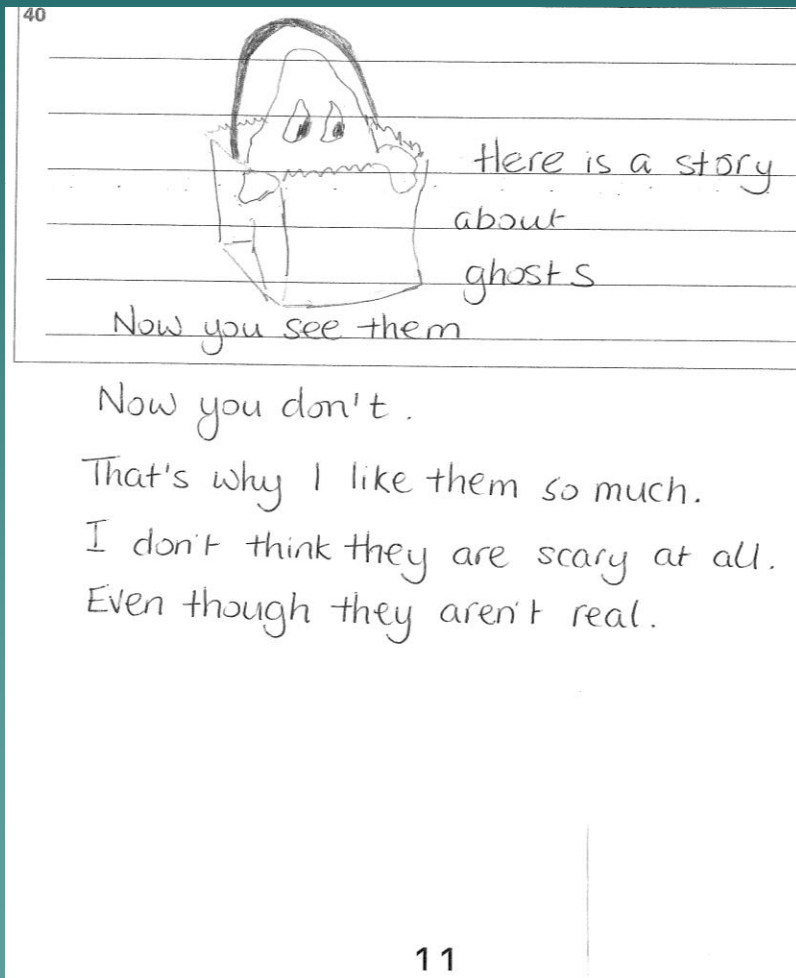 40
Here is a story
about
ghosts
Now you see them
Now you don't.
That's why I like them so much.
I don't think they are scary at all.
Even though they aren't real.
11